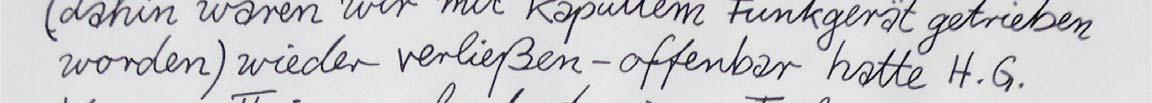 (dahin waren wir mit kaputtem Funkgerät getrieben
worden) wieder verließen – offenbar hatte H. G.